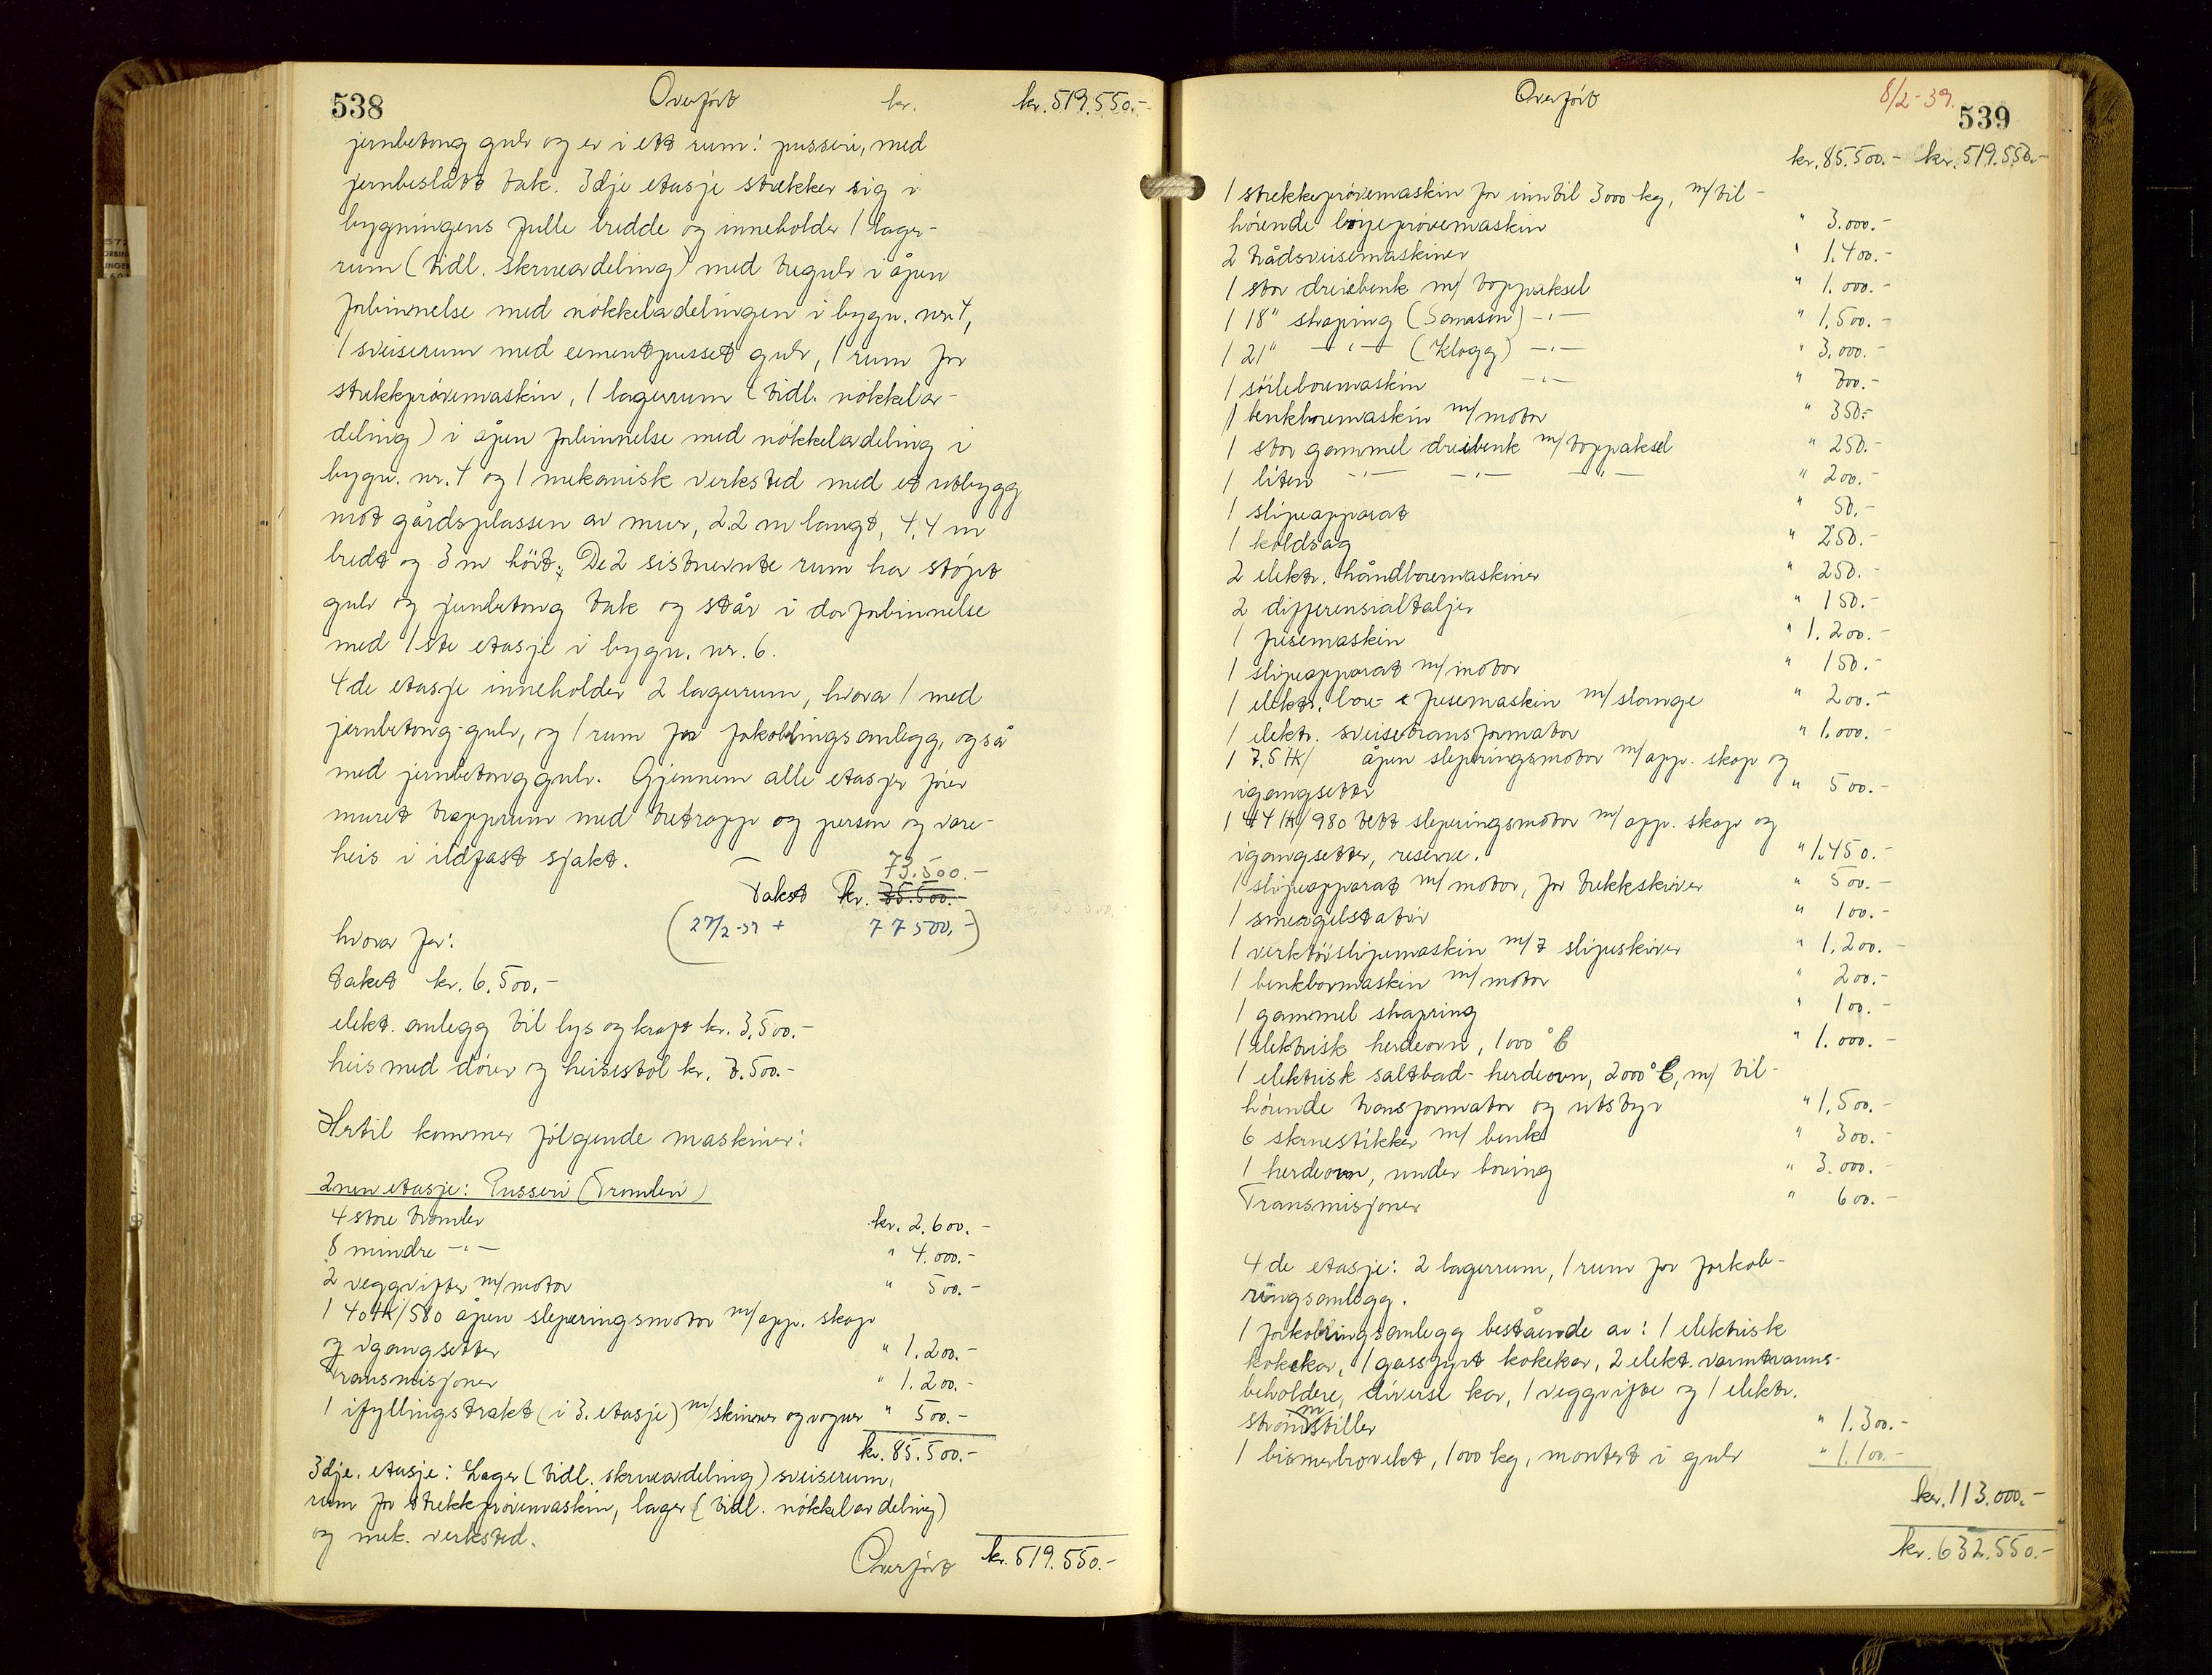 538 Overført kr. kr. 519.550.-
jernbetong gulv og er i ett rum: pusseri, med
jernbeslått tak. 3dje etasje strekker sig i
bygningens fulle bredde og inneholder 1 lager-
rum (tidl. skrueavdeling) med tregulv i åpen
forbinnelse med nökkelavdelingen i bygn. nr. 4,
1 sveiserum med cementpusset gulv, 1 rum for
strekkprøvemaskin, 1 lagerrum (tidl. nökkelav-
deling) i åpen forbinnelse med nökkelavdeling i
bygn. nr. 4 og 1 mekanisk verksted med et utbygg
mot gårdsplassen av mur, 2.2 m langt, 4,4 m
bredt og 3 m höit. De 2 sistnevnte rum har støpt
gulv og jernbetong tak og står i dørforbinnelse
med 1ste etasje i bygn. nr. 6.
4de etasje inneholder 2 lagerrum, hvorav 1 med
jernbetong-gulv, og 1 rum for forkobringsanlegg, også
med jernbetonggulv. Gjennem alle etasjer fører
muret trapperum med tretrapp og person og vare-
heis i ildfast sjakt.
73.500.-
Takst kr. 75.500.-
(27/2-39 + 77500,-)
hvorav for:
taket kr. 6.500.-
elekt. anlegg til lys og kraft kr. 3.500.-
heis med dører og heisestol kr. 7.500.-
Hertil kommer følgende maskiner:
2nen etasje: Pusseri (Tromleri)
4 store tromler kr. 2.600.-
8 mindre -"- " 4.000.-
2 veggvifter m/motor " 500.-
1 40 HK/580 åpen sleperingsmotor m/app. skap
og igangsetter " 1.200.-
Transmisjoner " 1.200.-
1 ifyllingstrakt (i 3. etasje) m/skinner og vogner " 500.-
kr. 85.500.-
3dje. etasje: Lager (tidl. skrueavdeling) sveiserum,
rum for strekkprøvemaskin, lager (tidl. nökkelavdeling)
og mek. verksted.
Overført kr. 519.550.-
Overført 8/2-39. 539
kr. 85.500.- kr. 519.550.-
1 strekkeprøvemaskin for inntil 3000 kg, m/til-
hörende böyeprøvemaskin " 3.000.-
2 trådsveisemaskiner " 1.400.-
1 stor dreiebenk m/ toppaksel " 1.000.-
1 18" shaping (Samason) -"- " 1.500.-
1 21" -"- (Klogg) -"- " 3.000.-
1 söileboremaskin -"- " 700.-
1 benkboremaskin m/motor " 350.-
1 stor gammel dreibenk m/toppaksel " 250.-
1 liten -"- -"- -"- " 200.-
1 slipeapparat " 50.-
1 koldsag " 250.-
2 elektr. håndboremaskiner " 250.-
2 differensialtaljer " 150.-
1 fresemaskin " 1.200.-
1 slipeapparat m/motor " 150.-
1 elektr. bore- & fresemaskin m/slange " 200.-
1 elektr. sveisetransformator " 1.000.-
1 7.5 HK/ åpen sleperingsmotor m/app. skap og
igangsetter " 500.-
1 44 HK/980 tett sleperingsmotor m/app. skap og
igangsetter, reserve. " 1.450.-
1 slipeapparat m/motor, for trekkskiver " 500.-
1 smergelstativ " 100.-
1 verktöislipemaskin m/7 slipeskiver " 1.200.-
1 benkbormaskin m/motor " 200.-
1 gammel shapring " 100.-
1 elektrisk herdeovn, 1000° C " 1.000.-
1 elektrisk saltbad-herdeovn, 2000° C, m/ til-
hörende transformator og utstyr " 1.500.-
6 skruestikker m/ benk " 300.-
1 herdeovn, under boring " 3.000.-
Transmisjoner " 600.-
4de etasje: 2 lagerrum, 1 rum for forkob-
ringsanlegg.
1 forkobringsanlegg bestående av: 1 elektrisk
kokekar, 1 gassfyrt kokekar, 2 elekt. varmtvanns-
beholdere, diverse kar, 1 veggvifte og 1 elektr.
strømstiller " 1.300.-
1 bismerbrovekt, 1000 kg, montert i gulv " 1.100.-
kr. 113.000.-
kr. 632.550.-